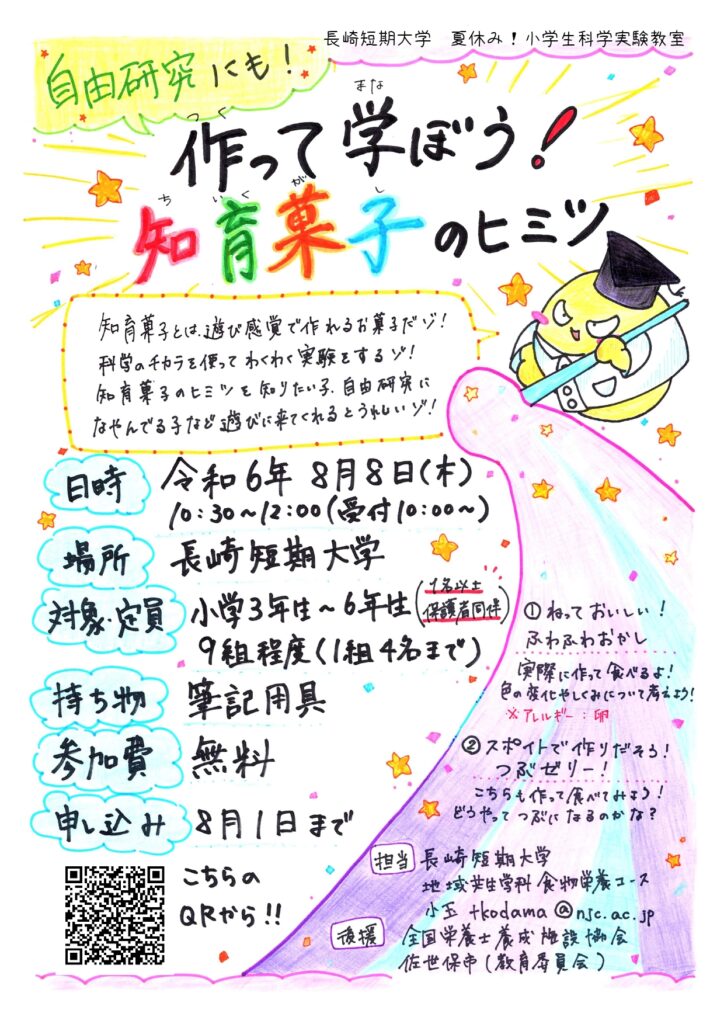 長崎短期大学　夏休み！小学生科学実験教室
自由研究にも！
作って学ぼう！
つく　まな
知育菓子のヒミツ
ちいくがし
知育菓子とは、遊び感覚で作れるお菓子だゾ！
科学のチカラを使ってわくわく実験をするゾ！
知育菓子のヒミツを知りたい子、自由研究に
なやんでる子など遊びに来てくれるとうれしいゾ！
日時　令和6年 8月8日(木)
10:30～12:00(受付10:00～)
場所　長崎短期大学
対象・定員　小学3年生～6年生(1名以上保護者同伴)
9組程度(1組4名まで)
持ち物　筆記用具
参加費　無料
申し込み　8月1日まで
こちらの
QRから!!
①ねっておいしい！
ふわふわおかし
実際に作って食べるよ！
色の変化やしくみについて考えよう！
※アレルギー：卵
②スポイトで作りだそう！
つぶゼリー！
こちらも作って食べてみよう！
どうやってつぶになるのかな？
担当　長崎短期大学
地域共生学科 食物栄養コース
小玉 tkodama@njc.ac.jp
後援　全国栄養士養成施設協会
佐世保市(教育委員会)